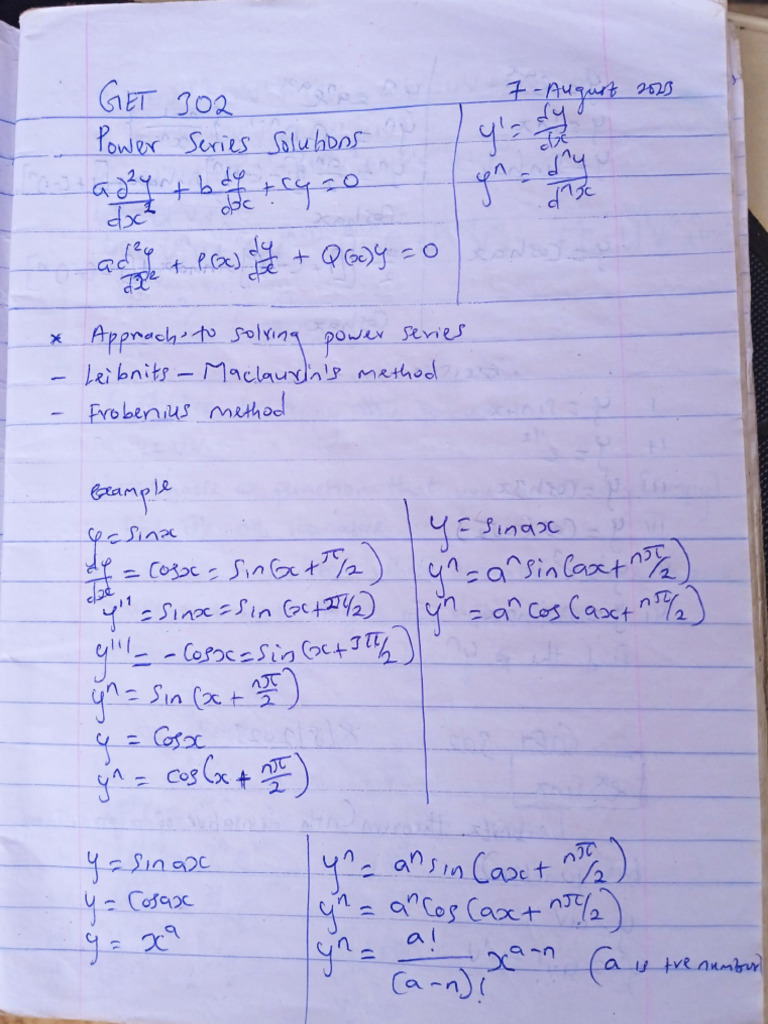 GET 302
7-August 2023
Power Series Solutions
a d²y/dx² + b dy/dx + cy = 0
a d²y/dx² + P(x) dy/dx + Q(x)y = 0
y' = dy/dx
yⁿ = dⁿy/dⁿx
* Approach to solving power series
- Leibnits - Maclaurin's method
- Frobenius method
Example
y = sinx
dy/dx = cosx = sin(x + π/2)
y'' = sinx = sin(x + 2π/2)
y''' = - cosx = sin(x + 3π/2)
yⁿ = sin(x + nπ/2)
y = cosx
yⁿ = cos(x + nπ/2)
y = sinax
yⁿ = aⁿ sin(ax + nπ/2)
yⁿ = aⁿ cos(ax + nπ/2)
y = sinax yⁿ = aⁿ sin(ax + nπ/2)
y = cosax yⁿ = aⁿ cos(ax + nπ/2)
y = xᵃ yⁿ = a!/(a-n)! xᵃ⁻ⁿ (a is +ve number)